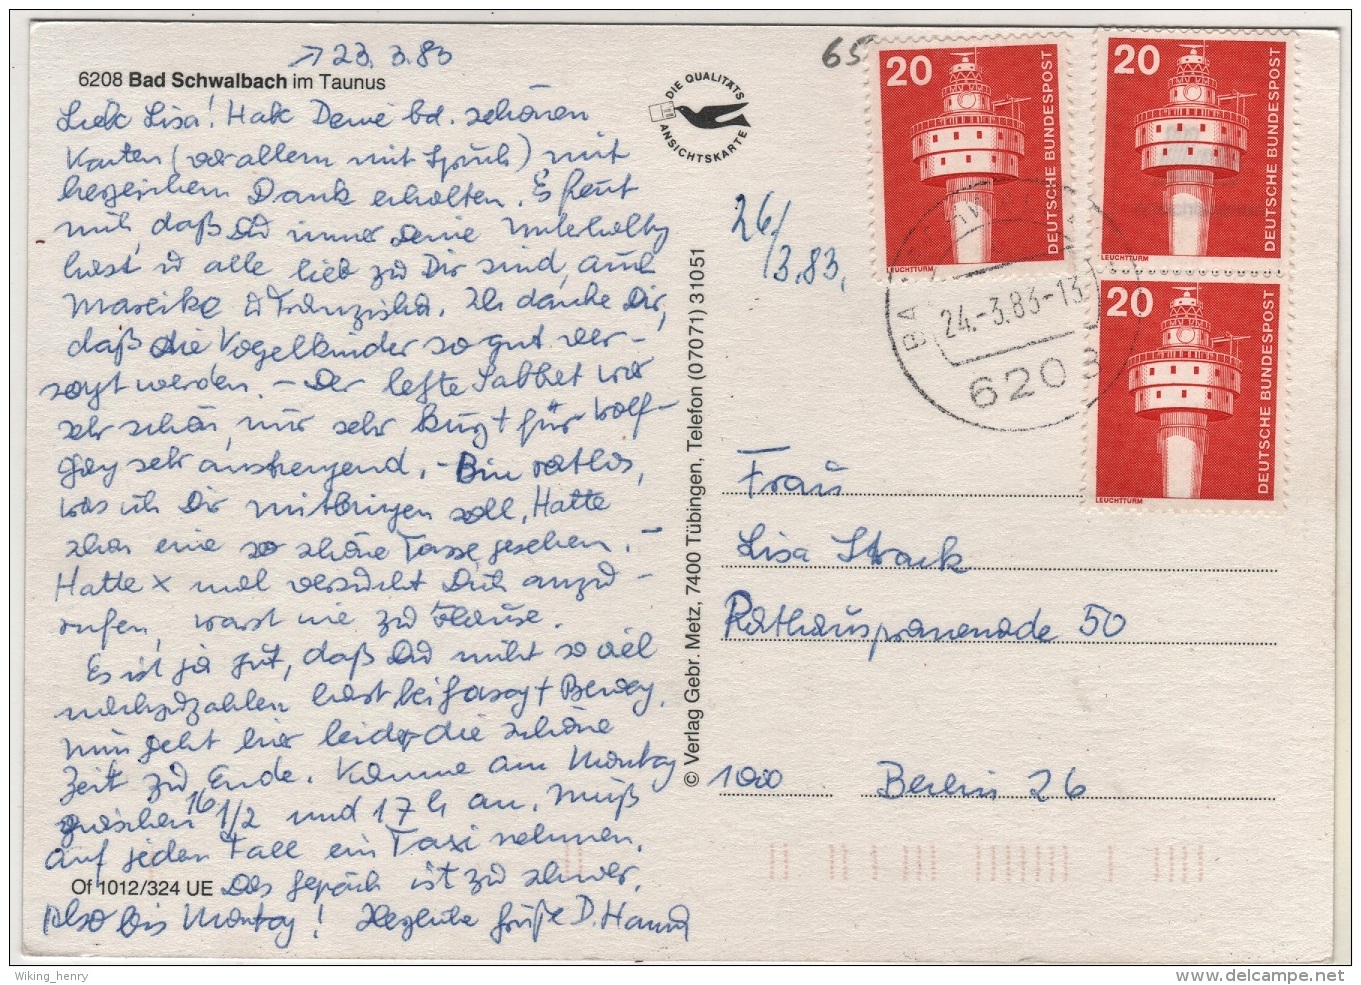 → 23. 3. 83
6208 Bad Schwalbach im Taunus
Liebe Lisa! Habe Deine bd. schönen
Karten (vor allem mit Spruch) mit
herzlichem Dank erhalten. Es freut
mich, daß Du immer Deine Unterhaltg
hast, u alle lieb zu Dir sind, auch
Mareike u Franziska. Ich danke Dir,
daß die Vogelkinder so gut ver-
sorgt werden. – Der letzte Sabbat war
sehr schön, nur sehr kurz + für Wolf-
gang sehr anstrengend. – Bin ratlos,
was ich Dir mitbringen soll, Hatte
schon eine so schöne Tasse gesehen. –
Hatte x mal versucht Dich anzu-
rufen, warst nie zu Hause.
Es ist ja gut, daß Du nicht so viel
nachzuzahlen hast bei Gasag + Bewag.
Nun geht hier leider die schöne
Zeit zu Ende. Komme am Montag
zwischen 16 1/2 und 17 h an. Muß
auf jeden Fall ein Taxi nehmen.
Of 1012/324 UE Das Gepäck ist zu schwer.
Also bis Montag! Herzliche Grüße D. Hanna
DIE QUALITÄTS
ANSICHTSKARTE
© Verlag Gebr. Metz, 7400 Tübingen, Telefon (07071) 31051
26/3.83.
65
20
DEUTSCHE BUNDESPOST
LEUCHTTURM
20
DEUTSCHE BUNDESPOST
LEUCHTTURM
20
DEUTSCHE BUNDESPOST
LEUCHTTURM
BA
24.-3.83-13
6208
Frau
Lisa Strack
Rathauspromenade 50
1000 Berlin 26
Wiking_henry
www.delcampe.net